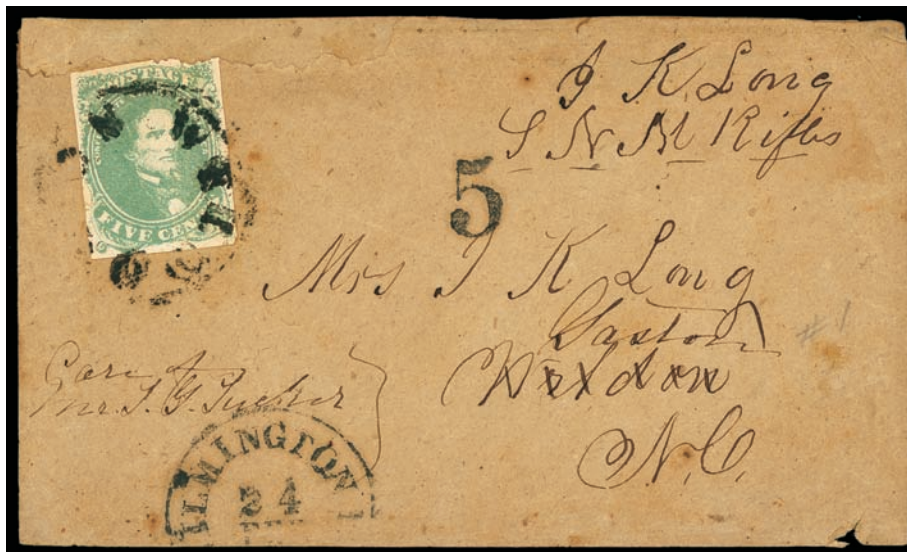 POSTAGE
FIVE CEN
J K Long
S N M Rifles
5
Mrs J K Long
Gaston
Weldon
N.C.
Care of
Mr. T. G. Tucker
ILMINGTON
24
# 1